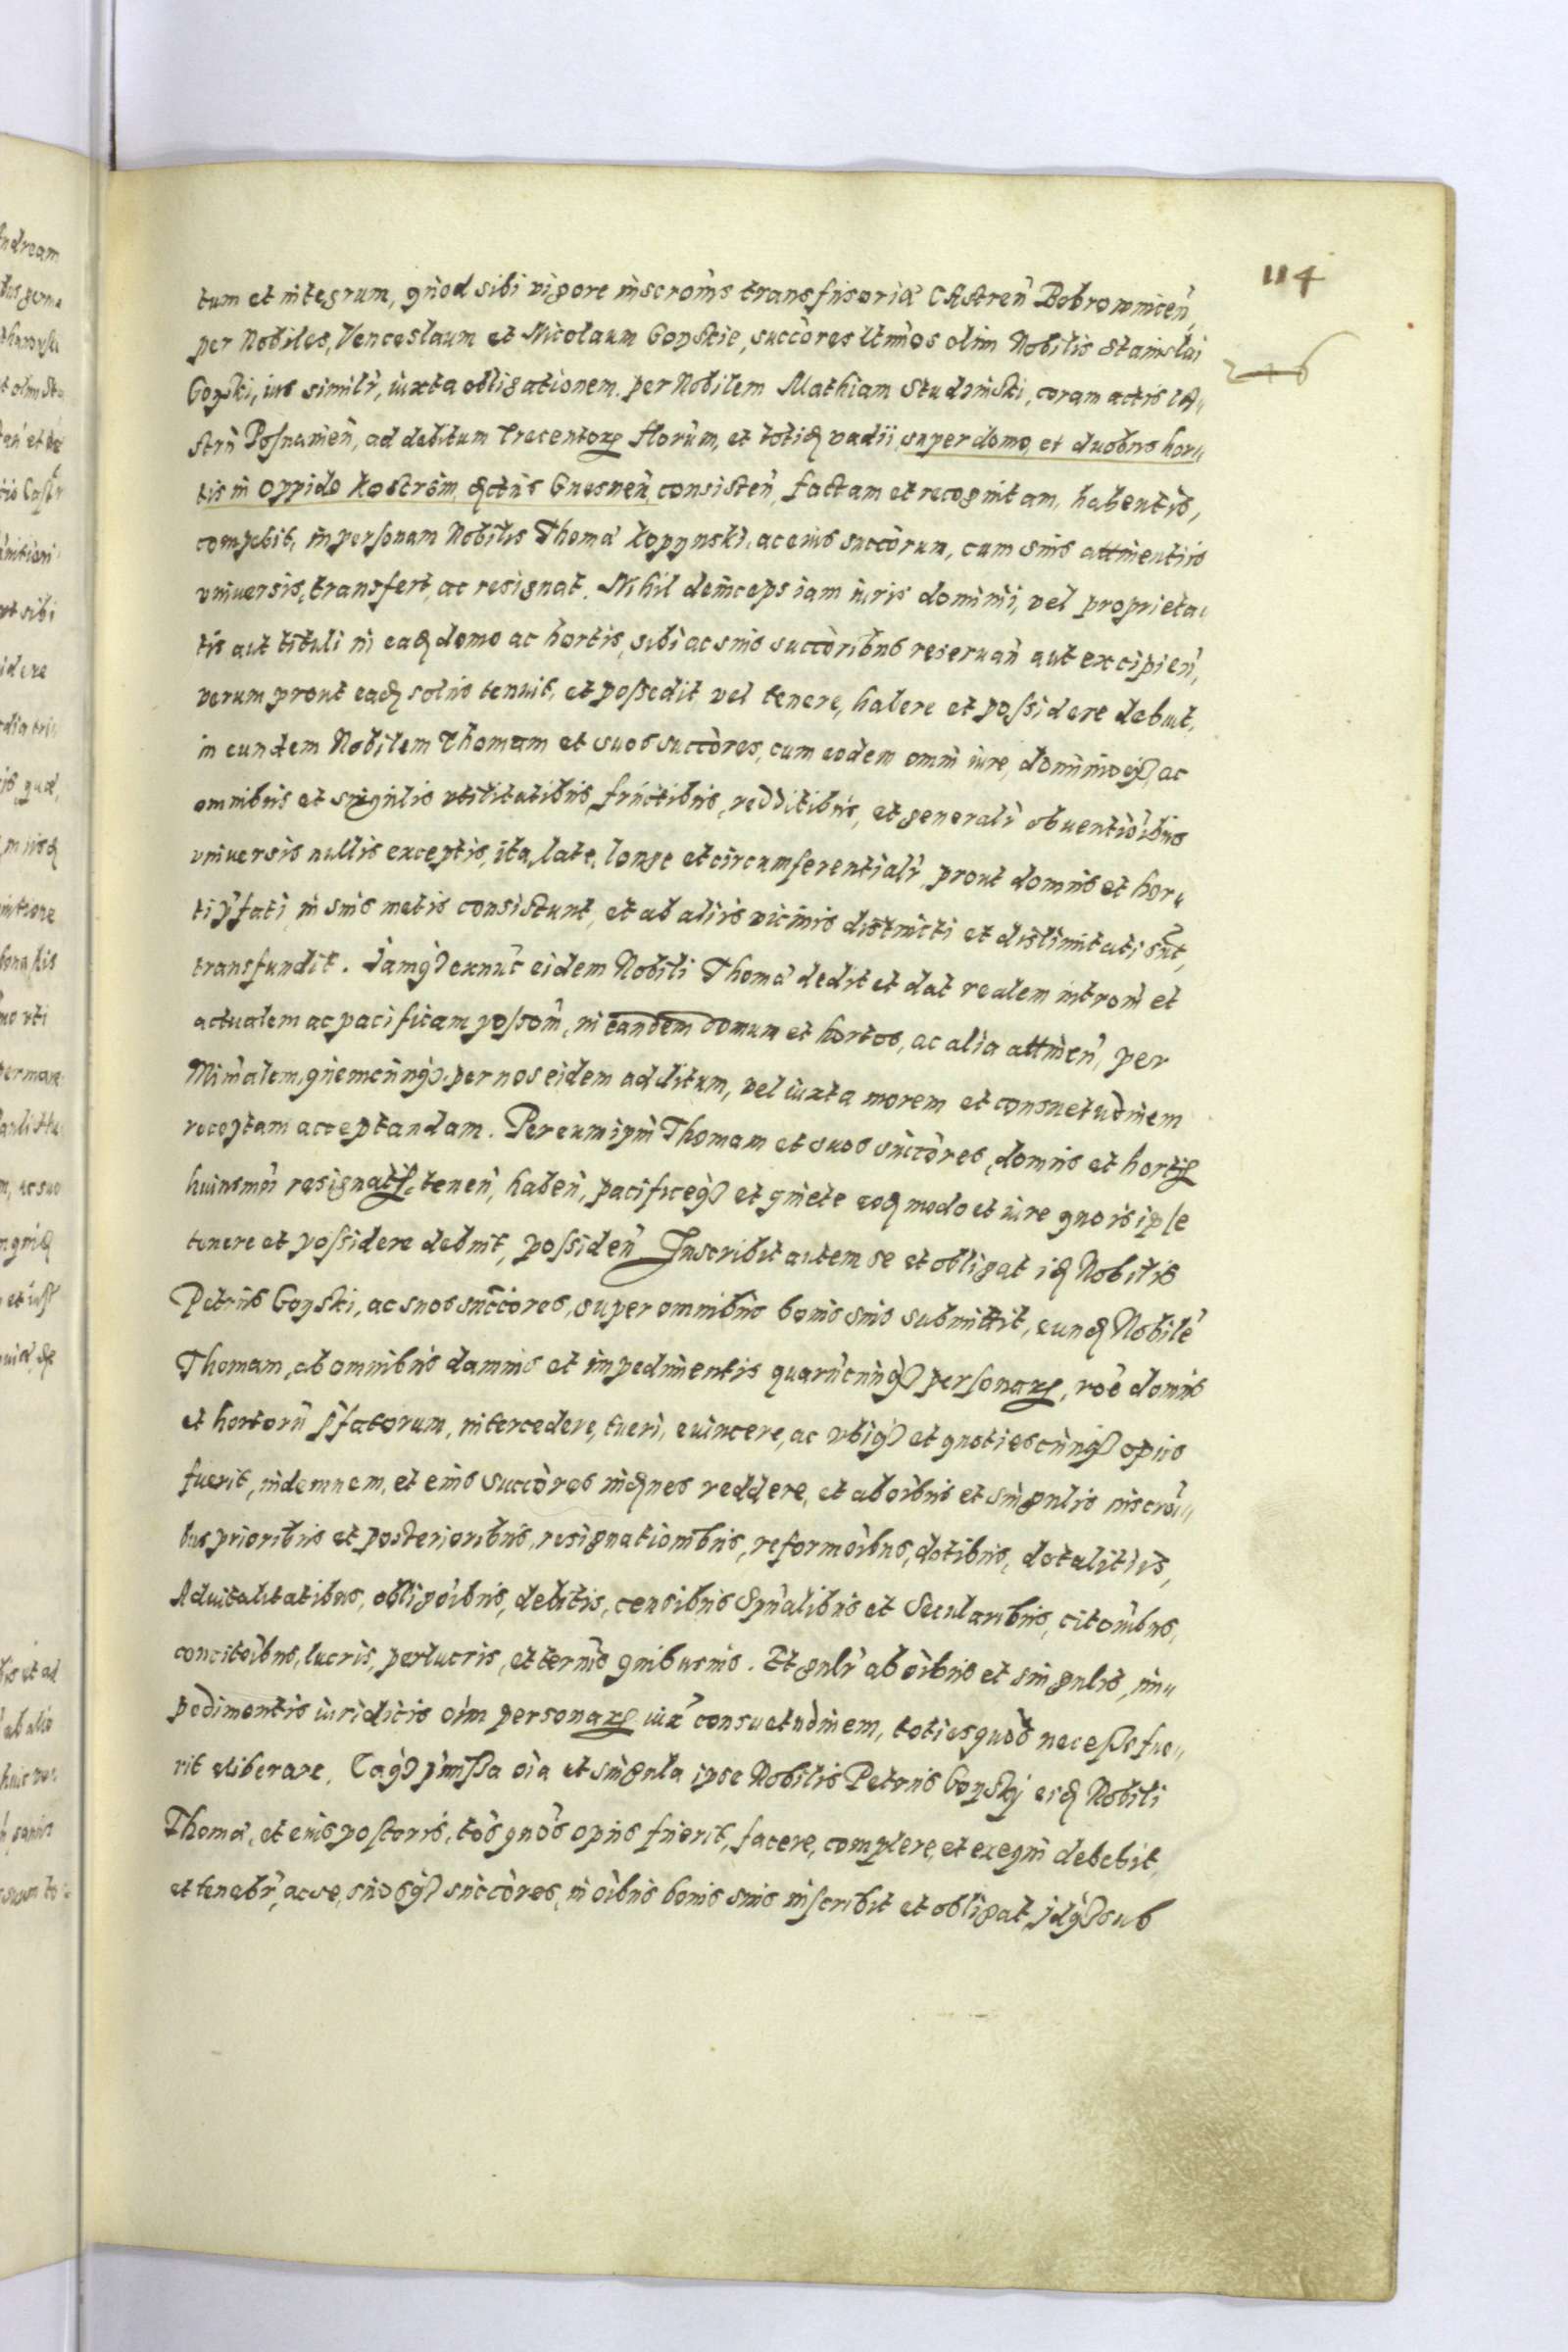 114
tum et integrum, quod sibi vigore inscrōis transfusoriæ Castreñ Bobrownicen̄,
per Nobiles, Venceslaum et Nicolaum Gopskie, succōres ltīmos olim Nobilis Stanislai
Gopski, ius similr̄, iuxta obligationem per Nobilem Mathiam Studzinski, coram actis CA„
strn̄ Posnanien̄, ad debitum Trecentoꝝ florūm, et totiꝫ vadii, super domo, et duobus hor„
tis in oppido Kostrsin, dčtus Gnesnen̄, consisten̄, factam et recognitam, habentis,
competit, in personam Nobilis Thomæ Kopynski, ac eius succōrum, cum suis attinentiis
universis, transfert, ac resignat. Nihil deinceps iam iuris dominii, vel proprieta„
tis aut tituli in eaꝫ domo ac hortis, sibi ac suis succōribus reseruan̄ aut excipien̄,
verum prout eaꝫ solus tenuit, et possedit, vel tenere, habere et possidere debuit,
in eundem Nobilem Thomam et suos succōres, cum eodem omni iure, dominioqꝫ, ac
omnibus et singulis utilitatibus, fructibus, redditibus, et generalr̄ obuentiōibus
vniuersis nullis exceptis, ita, late, longe et circumferentialr̄, prout domus et hor„
ti p̄fati, in suis metis consistunt, et ab aliis vicinis distincti et dislimitati sūt,
transfundit. Iamqꝫ exnūc eidem Nobili Thomæ dedit et dat realem introm̄ et
actualem ac pacificam possom̄, in eandem domum et hortos, ac alia attinen̄, per
Min̄alem, quemcunqꝫ per nos eidem additum, vel iuxta morem et consuetudinem
receptam acceptandam. Per eum ipm̄ Thomam et suos succōres, domus et hortiꝝ
huiusmōi resignatiꝝ, tenen̄, haben̄, pacificeqꝫ et quiete eoꝫ modo et iure quo is ipse
tenere et possidere debuit, possiden̄. Inscribit autem se et obligat iꝫ Nobilis
Petrus Gopski, ac suos succōres, super omnibus bonis suis submittit, eunꝫ Nobilē
Thomam, ab omnibus damnis et impedimentis quarūcunqꝫ personaꝝ, roē domus
et hortorū p̄fatorum, intercedere, tueri, euincere, ac ubiqꝫ et quotiescunqꝫ opus
fuerit, indemnem, et eius succōres inꝫnes reddere, et ab oībus et singulis inscrōi„
bus prioribus et posterioribus, resignationibus, reformōibus, dotibus, dotalitiis,
Aduitalitatibus, obligōibus, debitis, censibus Spūalibus et Secularibus, citōnibus,
concitōibus, lucris, perlucris, et termīs quibusuis. Et gnlr̄ ab oībus et singulis, im„
pedimentis iuridicis oīm personaꝝ iux̄ consuetudinem, toties quōs necesse fue„
rit eliberare. Eaqꝫ p̄missa oīa et singula ipse Nobilis Petrus Gopskj eiꝫ Nobili
Thomæ, et eius posteris, tōs quōs opus fuerit, facere, complere, et exequi debebit
et tenebr̄, ac se, suosqꝫ succōres, in oībus bonis suis inscribit et obligat, idqꝫ sub